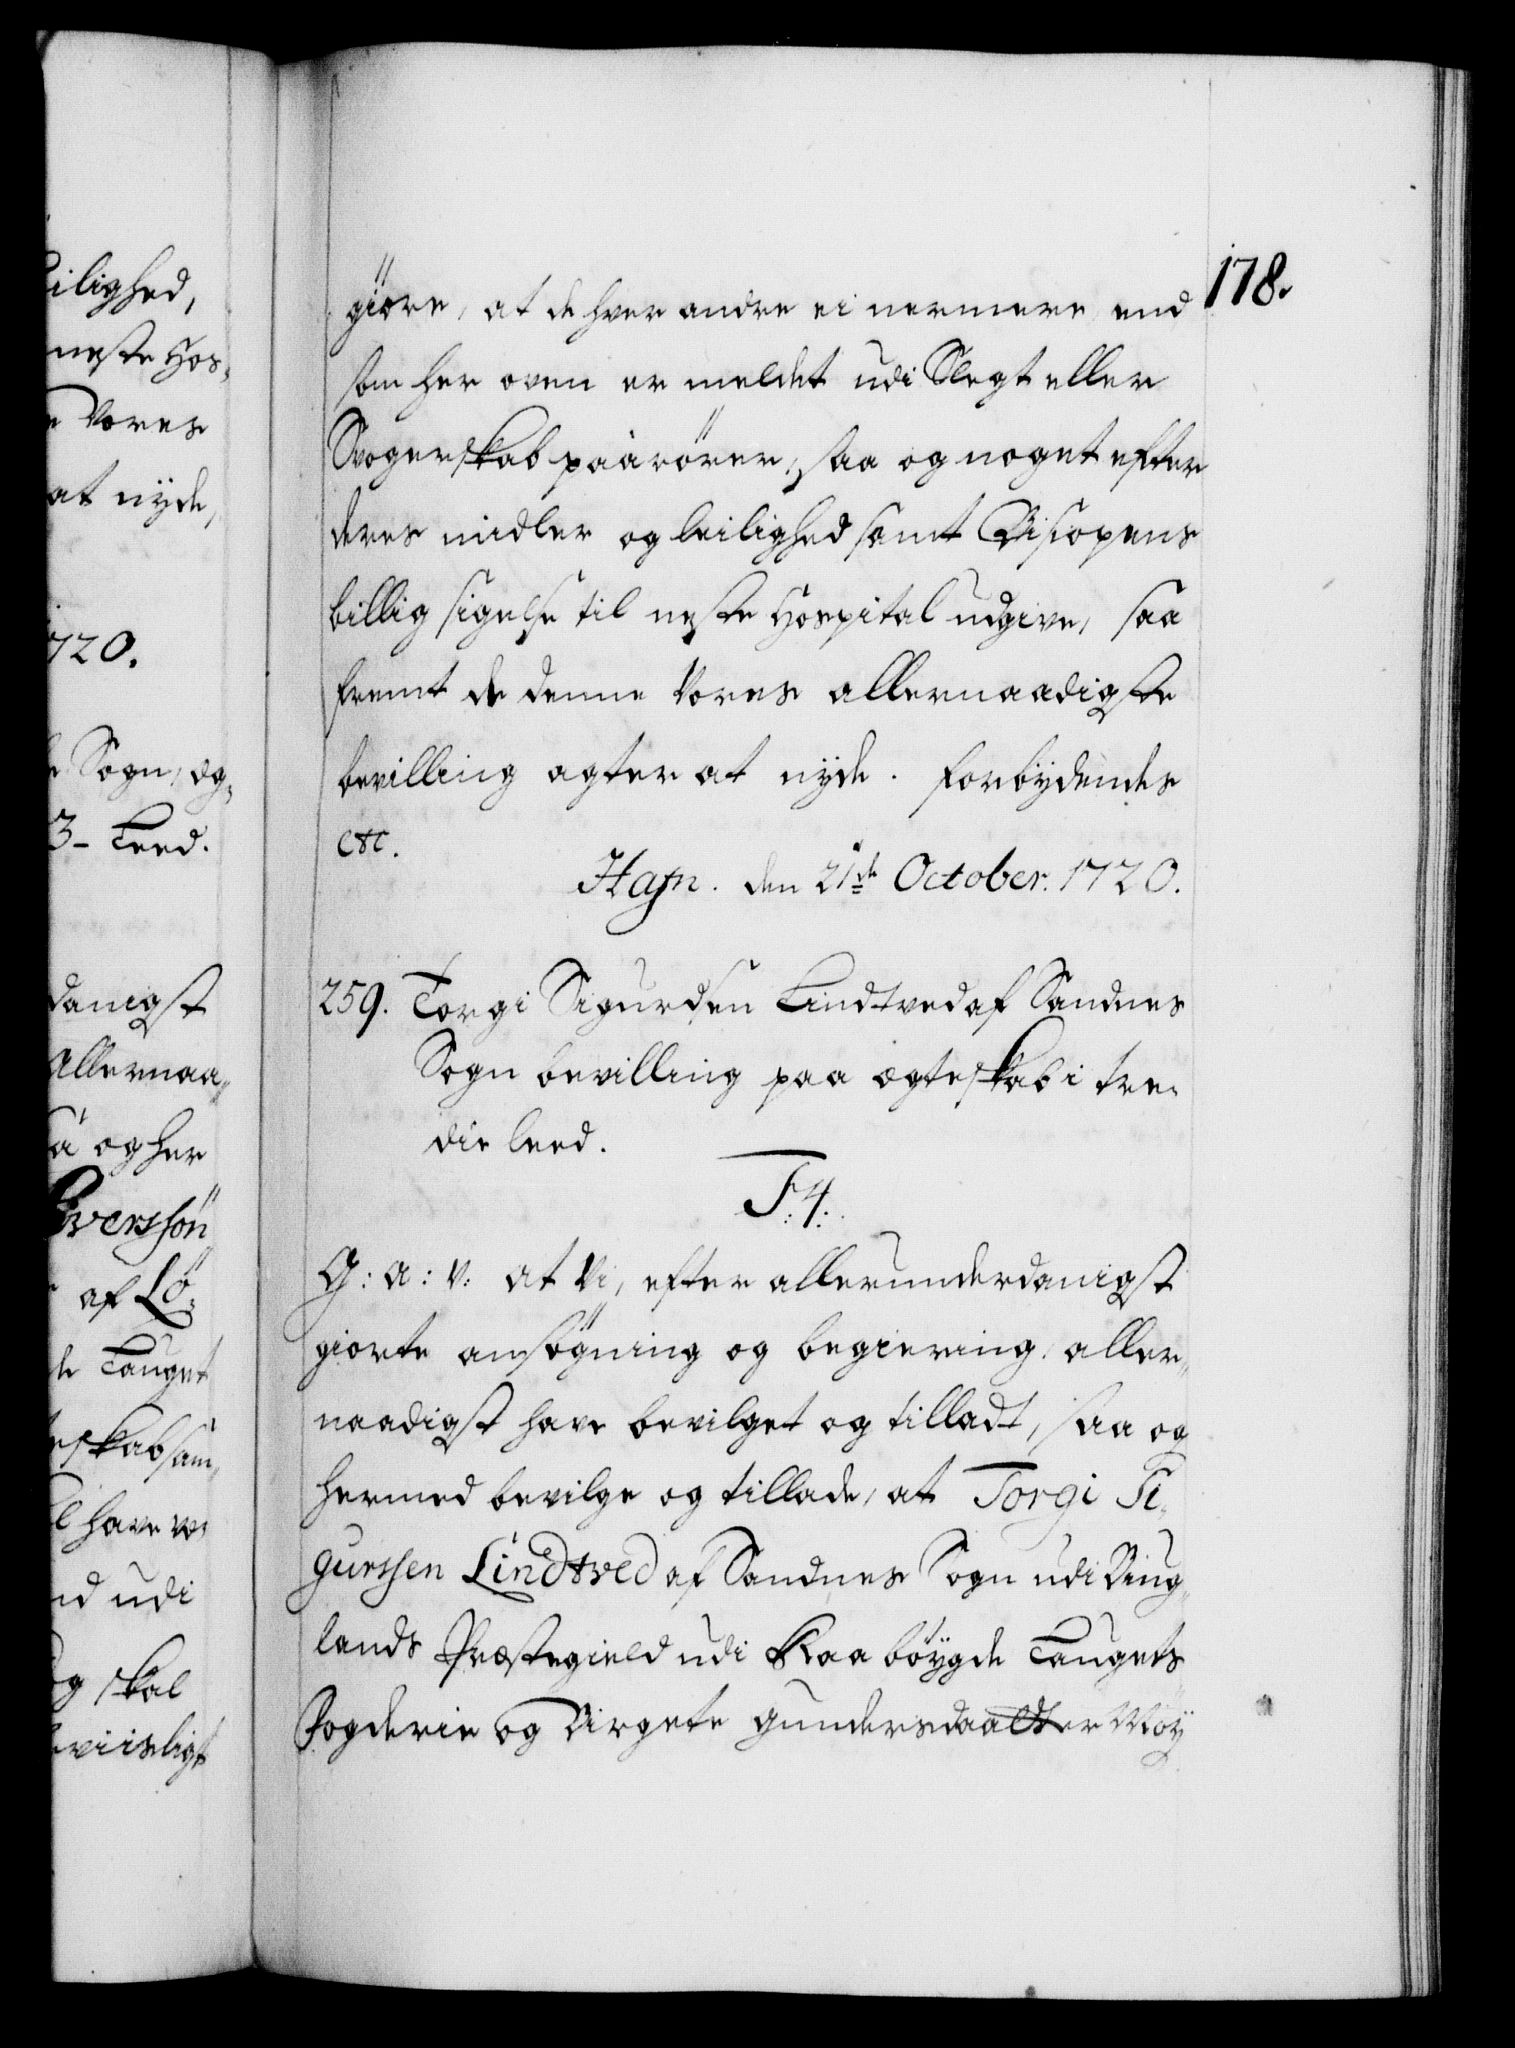 ilighed,
neste Hos-
e Vores
at nyde,
1720.
e Sogn, og-
3- Leed.
danigst
Allernaa-
a og her
Iversøn
af Lø-
de Lauget
eskab sam-
l have vo-
nd udi
og skal
eviisligt
178.
giøre, at de hver andre ei nermere end
som her oven er meldet udi Slegt eller
Svogerskab paarører, saa og noget efter
deres midler og leilighed samt Biscopens
billig sigelse til neste Hospital udgive, saa
fremt de denne Vores allernaadigste
bevilling agter at nyde. forbydendes
etc.
Hafn. den 21de October. 1720.
259. Torgi Sigurdsen Lindtved af Sandnes
Sogn bevilling paa ægteskab i tre-
die leed.
F. 4.
G: a: v: at Vi, efter allerunderdanigst
giorte ansøgning og begiering, aller-
naadigst have bevilget og tilladt, saa og
hermed bevilge og tillade, at Torgi Si-
gurssen Lindtved af Sandnes Sogn udi Ring-
lands Præstegield udi Raabøygde Laugets
Fogderie og Birgete Gundersdaatter Møy